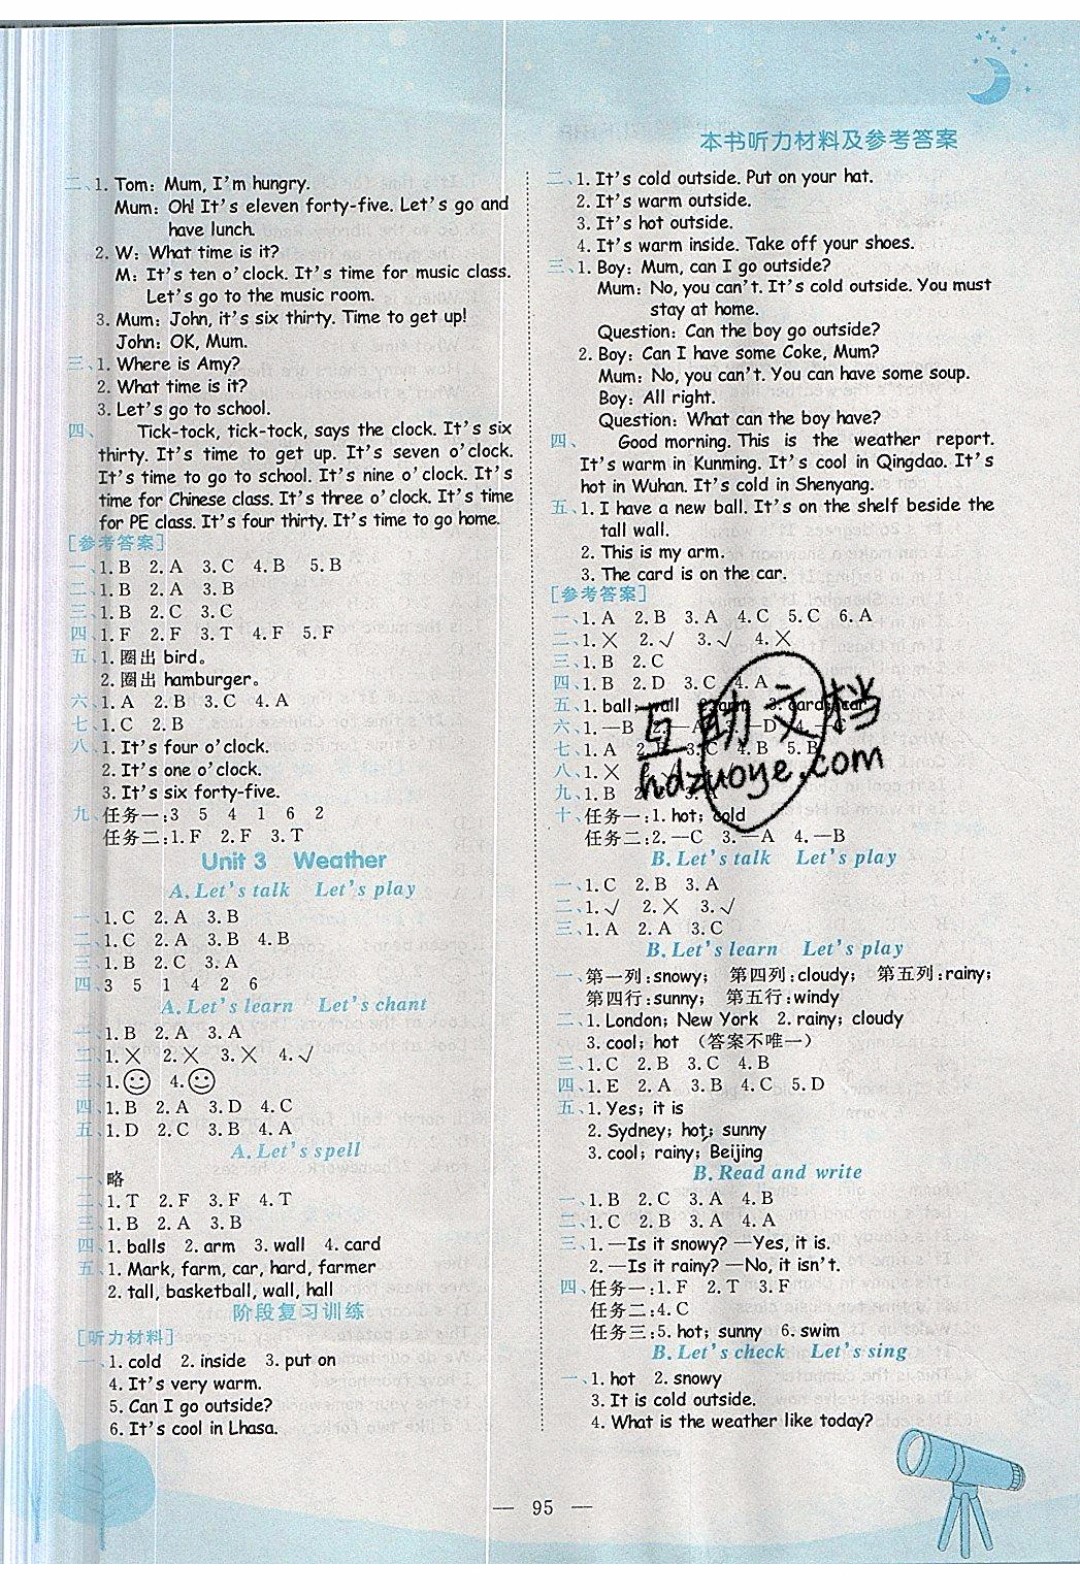 本书听力材料及参考答案
二、1. Tom: Mum, I'm hungry.
Mum: Oh! It's eleven forty-five. Let's go and
have lunch.
2. W: What time is it?
M: It's ten o'clock. It's time for music class.
Let's go to the music room.
3. Mum: John, it's six thirty. Time to get up!
John: OK, Mum.
三、1. Where is Amy?
2. What time is it?
3. Let's go to school.
四、 Tick-tock, tick-tock, says the clock. It's six
thirty. It's time to get up. It's seven o'clock.
It's time to go to school. It's nine o'clock. It's
time for Chinese class. It's three o'clock. It's time
for PE class. It's four thirty. It's time to go home.
[参考答案]
一、1. B 2. A 3. C 4. B 5. B
二、1. B 2. A 3. B
三、1. B 2. C 3. C
四、1. F 2. F 3. T 4. F 5. F
五、1. 圈出 bird。
2. 圈出 hamburger。
六、1. A 2. B 3. C 4. A
七、1. C 2. B
八、1. It's four o'clock.
2. It's one o'clock.
3. It's six forty-five.
九、任务一:3 5 4 1 6 2
任务二:1. F 2. F 3. T
Unit 3 Weather
A. Let's talk Let's play
一、1. C 2. A 3. B
二、1. C 2. A 3. B 4. B
三、1. B 2. C 3. A
四、3 5 1 4 2 6
A. Let's learn Let's chant
一、1. B 2. A 3. A
二、1. × 2. × 3. × 4. √
三、1. ☺ 4. ☺
四、1. B 2. A 3. D 4. C
五、1. D 2. C 3. B 4. A
A. Let's spell
一、略
二、1. T 2. F 3. F 4. T
三、1. B 2. A 3. B
四、1. balls 2. arm 3. wall 4. card
五、1. Mark, farm, car, hard, farmer
2. tall, basketball, wall, hall
阶段复习训练
[听力材料]
一、1. cold 2. inside 3. put on
4. It's very warm.
5. Can I go outside?
6. It's cool in Lhasa.
二、1. It's cold outside. Put on your hat.
2. It's warm outside.
3. It's hot outside.
4. It's warm inside. Take off your shoes.
三、1. Boy: Mum, can I go outside?
Mum: No, you can't. It's cold outside. You must
stay at home.
Question: Can the boy go outside?
2. Boy: Can I have some Coke, Mum?
Mum: No, you can't. You can have some soup.
Boy: All right.
Question: What can the boy have?
四、 Good morning. This is the weather report.
It's warm in Kunming. It's cool in Qingdao. It's
hot in Wuhan. It's cold in Shenyang.
五、1. I have a new ball. It's on the shelf beside the
tall wall.
2. This is my arm.
3. The card is on the car.
[参考答案]
一、1. A 2. B 3. A 4. C 5. C 6. A
二、1. × 2. √ 3. √ 4. ×
三、1. B 2. C
四、1. B 2. D 3. C 4. A
五、1. ball; wall 2. arm 3. card; car
六、1. —B 2. —A 3. —D 4. —C
七、1. A 2. 3. C 4. B 5. B
八、1. ×
九、1. B 2. 3.
互助文档
hdzuoye.com
十、任务一:1. hot; cold
任务二:2. —C 3. —A 4. —B
B. Let's talk Let's play
一、1. C 2. B 3. A
二、1. √ 2. × 3. √
三、1. A 2. A 3. C
B. Let's learn Let's play
一、第一列:snowy; 第四列:cloudy; 第五列:rainy;
第四行:sunny; 第五行:windy
二、1. London; New York 2. rainy; cloudy
3. cool; hot (答案不唯一)
三、1. C 2. B 3. C 4. B
四、1. E 2. A 3. B 4. C 5. D
五、1. Yes; it is
2. Sydney; hot; sunny
3. cool; rainy; Beijing
B. Read and write
一、1. B 2. C 3. A 4. B
二、1. C 2. B 3. A 4. A
三、1. —Is it snowy? —Yes, it is.
2. —Is it rainy? —No, it isn't.
四、任务一:1. F 2. T 3. F
任务二:4. C
任务三:5. hot; sunny 6. swim
B. Let's check Let's sing
一、1. hot 2. snowy
3. It is cold outside.
4. What is the weather like today?
— 95 —